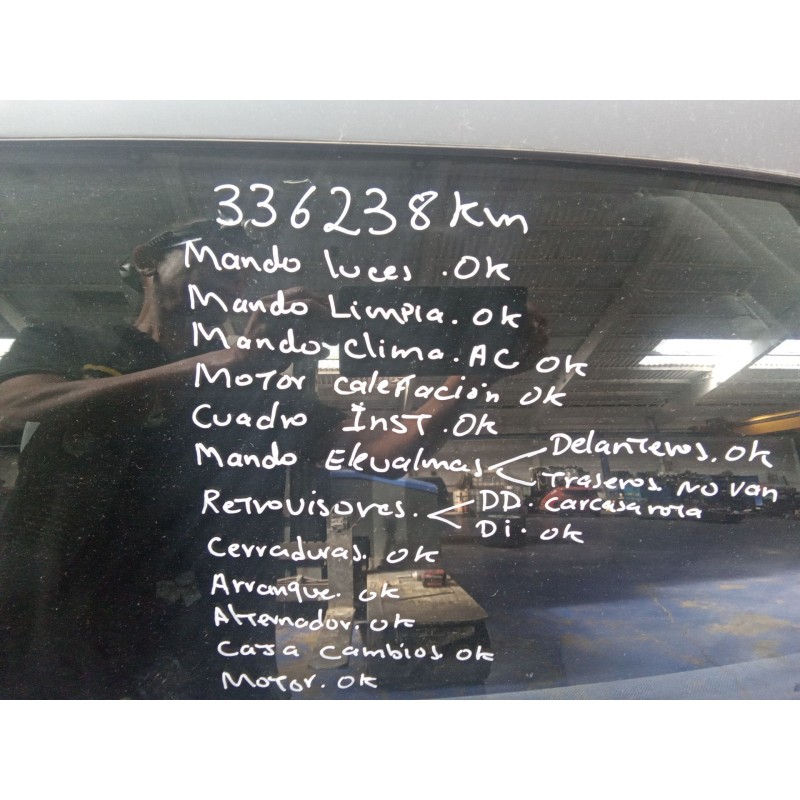 336238 km
Mando luces . Ok
Mando Limpia. ok
Mando-Clima. AC OK
Motor calefacion ok
Cuadro InsT. Ok
Mando Elevalunas Delanteros. ok
Traseros No van
Retrovisores. DD. carcasa rota
Di. ok
Cerraduras. ok
Arranque. ok
Alternador. ok
Caja Cambios ok
Motor. ok